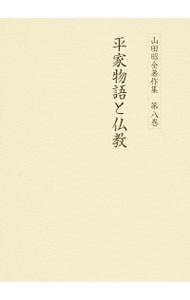 山田昭全著作集 第八巻
平家物語と仏教